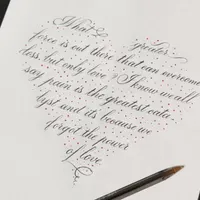 What greater
force is out there that can overcome
loss, but only love? I know we all
say pain is the greatest cata
lyst and its because we
forgot the power
of love.